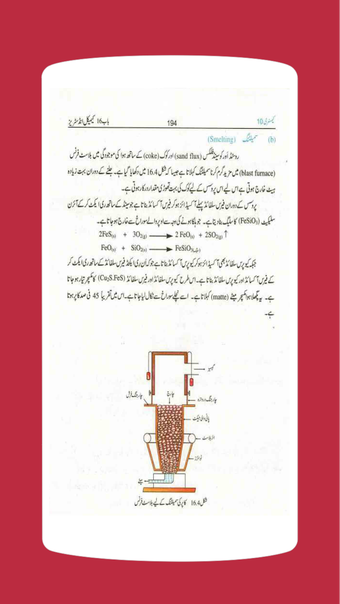 کیمسٹری 10 194 باب 16 کیمیکل انڈسٹریز
(b) سمیلٹنگ (Smelting)
روسٹڈ اور کو سینڈ فلکس (sand flux) اور کوک (coke) کے ساتھ ہوا کی موجودگی میں بلاسٹ فرنس
(blast furnace) میں مزید گرم کرنا سمیلٹنگ کہلاتا ہے جیسا کہ شکل 16.4 میں دکھایا گیا ہے۔ جلنے کے دوران بہت زیادہ
ہیٹ خارج ہوتی ہے اس لیے اس پروسس کے لیے کوک کی بہت تھوڑی مقدار درکار ہوتی ہے۔
پروسس کے دوران فیرس سلفائڈ پہلے آکسیڈائز ہو کر فیرس آکسائڈ بناتا ہے جو سینڈ کے ساتھ ری ایکٹ کر کے آئرن
سلیکیٹ (FeSiO₃) کا سلیگ بنا دیتا ہے۔ جو ہلکا ہونے کی وجہ سے اوپر والے سوراخ سے خارج ہو جاتا ہے۔
2FeS(s) + 3O2(g) ⟶ 2 FeO(s) + 2SO2(g) ↑
FeO(s) + SiO2(s) ⟶ FeSiO3(l)
جبکہ کیوپرس سلفائڈ بھی آکسیڈائز ہو کر کیوپرس آکسائڈ بناتا ہے جو کہ ان ری ایکٹڈ فیرس سلفائڈ کے ساتھ ری ایکٹ کر
کے فیرس آکسائڈ اور کیوپرس سلفائڈ بناتا ہے۔ اس طرح کیوپرس سلفائڈ اور فیرس سلفائڈ (Cu₂S.FeS) کا مکسچر تیار ہو جاتا
ہے۔ یہ پگھلا ہوا مکسچر میٹے (matte) کہلاتا ہے۔ اسے نچلے سوراخ سے نکال لیا جاتا ہے۔ اس میں تقریباً 45 فی صد کاپر ہوتا
ہے۔
چارج
میٹے
شکل 16.4 کاپر کی سمیلٹنگ کے لیے بلاسٹ فرنس